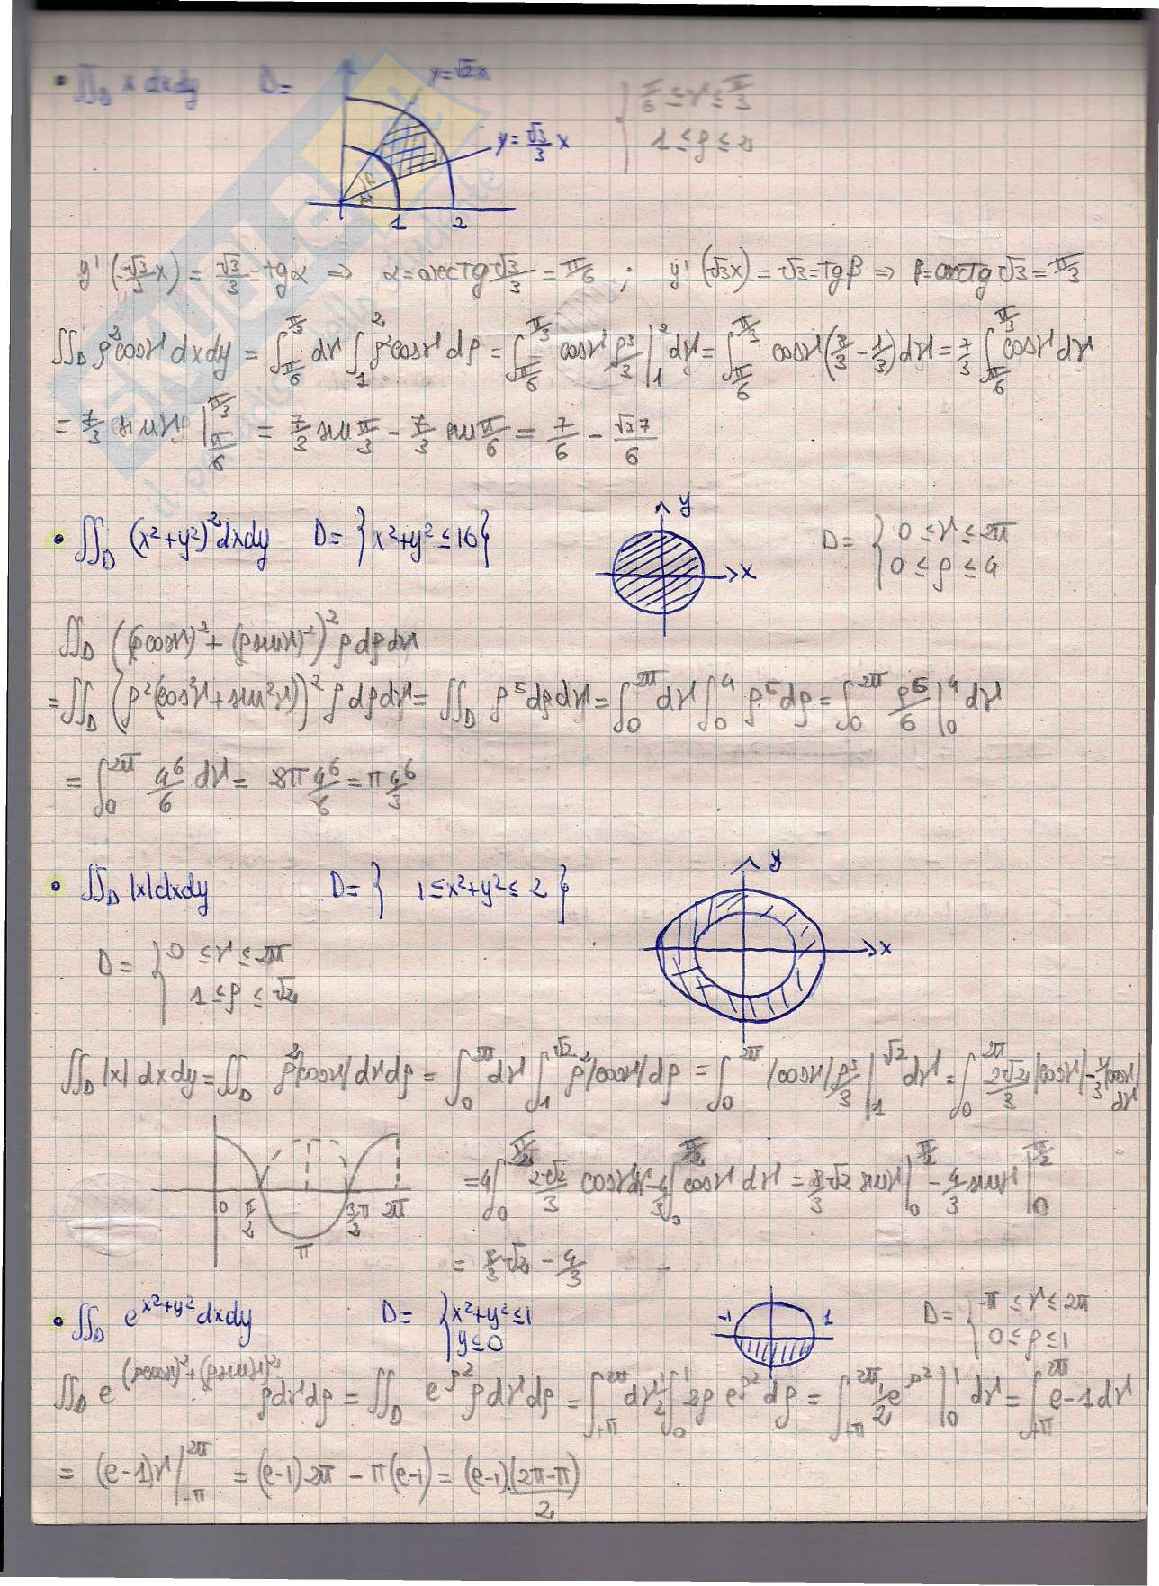 • ∬_D x dxdy    D=    y=√2x    { π/6 ≤ϑ≤ π/3
y=√3/3 x    1≤ρ≤2
1    2
y'(√3/3 x) = √3/3 = tgα ⇒ α=arctg √3/3 = π/6 ; y'(√3x) = √3=tgβ ⇒ β=arctg √3 = π/3
∬_D ρ²cosϑ dxdy = ∫_{π/6}^{π/3} dϑ ∫_1^2 ρ²cosϑ dρ = ∫_{π/6}^{π/3} cosϑ ρ³/3 |_1^2 dϑ = ∫_{π/6}^{π/3} cosϑ (8/3 - 1/3) dϑ = 7/3 ∫_{π/6}^{π/3} cosϑ dϑ
= 7/3 sinϑ |_{π/6}^{π/3} = 7/3 sin π/3 - 7/3 sin π/6 = 7/6 - √3 7/6
• ∬_D (x²+y²)² dxdy    D= } x²+y² ≤16 {    y    x    D= { 0 ≤ϑ≤2π
0≤ρ≤4
∬_D ((ρcosϑ)²+(ρsinϑ)²)² ρ dρ dϑ
= ∬_D (ρ²(cos²ϑ+sin²ϑ))² ρ dρ dϑ = ∬_D ρ⁵ dρ dϑ = ∫_0^{2π} dϑ ∫_0^4 ρ⁵ dρ = ∫_0^{2π} ρ⁶/6 |_0^4 dϑ
= ∫_0^{2π} 4⁶/6 dϑ = 2π 4⁶/6 = π 4⁶/3
• ∬_D |x| dxdy    D= } 1≤x²+y²≤2 }    y    x
D= { 0 ≤ϑ≤2π
1≤ρ≤√2
∬_D |x| dxdy = ∬_D ρ²|cosϑ| dϑ dρ = ∫_0^{2π} dϑ ∫_1^{√2} ρ²|cosϑ| dρ = ∫_0^{2π} |cosϑ| ρ³/3 |_1^{√2} dϑ = ∫_0^{2π} 2√2/3 |cosϑ| - 1/3 |cosϑ| dϑ
0    π/2    π    3/2 π    2π
= 4∫_0^{π/2} 2√2/3 cosϑ dϑ - 4/3 ∫_0^{π/2} cosϑ dϑ = 8/3 √2 sinϑ |_0^{π/2} - 4/3 sinϑ |_0^{π/2}
= 8/3 √2 - 4/3
• ∬_D e^{x²+y²} dxdy    D= { x²+y² ≤1    -1    1    D= { -π ≤ϑ≤2π
y≤0    0≤ρ≤1
∬_D e^{(ρcosϑ)²+(ρsinϑ)²} ρ dϑ dρ = ∬_D e^{ρ²} ρ dϑ dρ = ∫_{-π}^{2π} dϑ 1/2 ∫_0^1 2ρ e^{ρ²} dρ = ∫_{-π}^{2π} 1/2 e^{ρ²} |_0^1 dϑ = ∫_{-π}^{2π} e-1 dϑ
= (e-1)ϑ |_{-π}^{2π} = (e-1)2π - π(e-1) = (e-1)(2π-π)/2